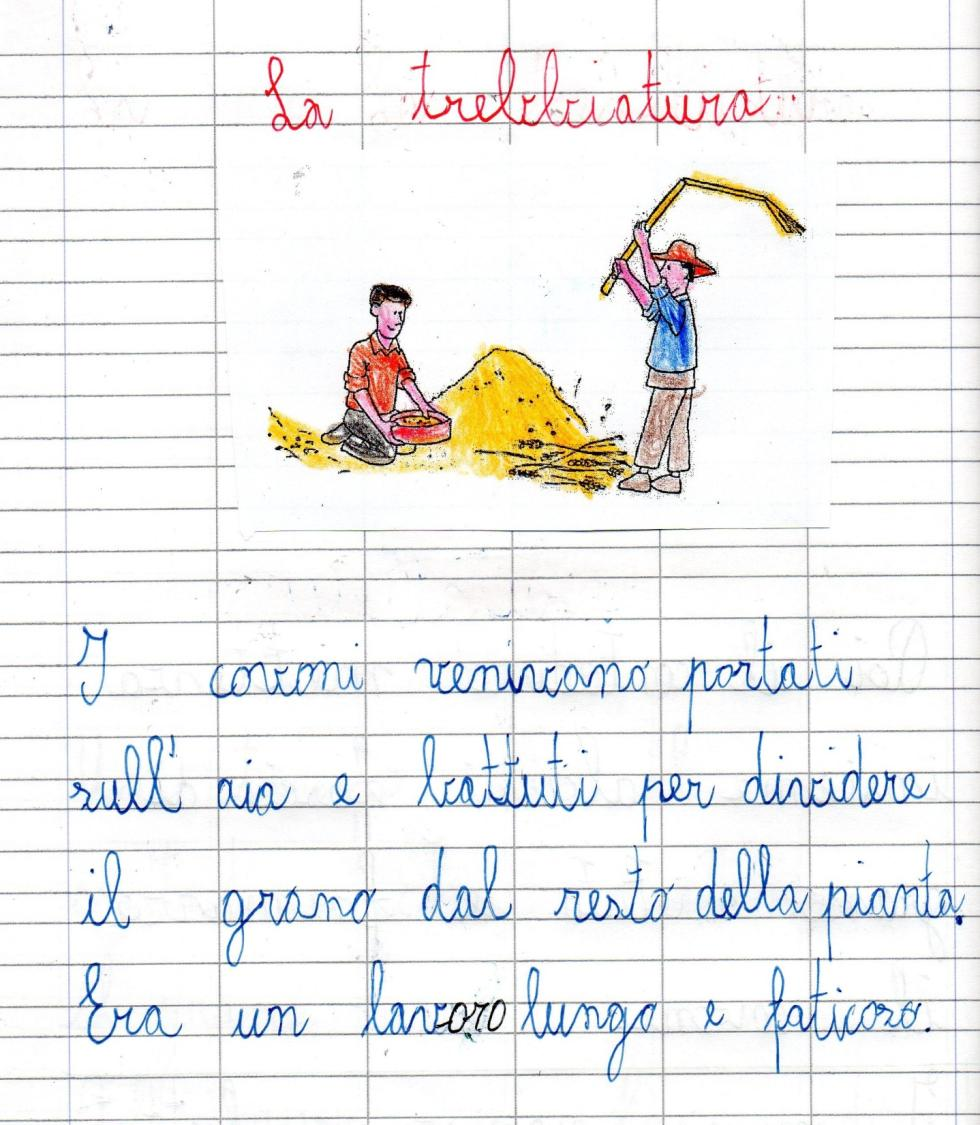 La trebbiatura
I covoni venivano portati
sull'aia e battuti per dividere
il grano dal resto della pianta.
Era un lavoro lungo e faticoso.